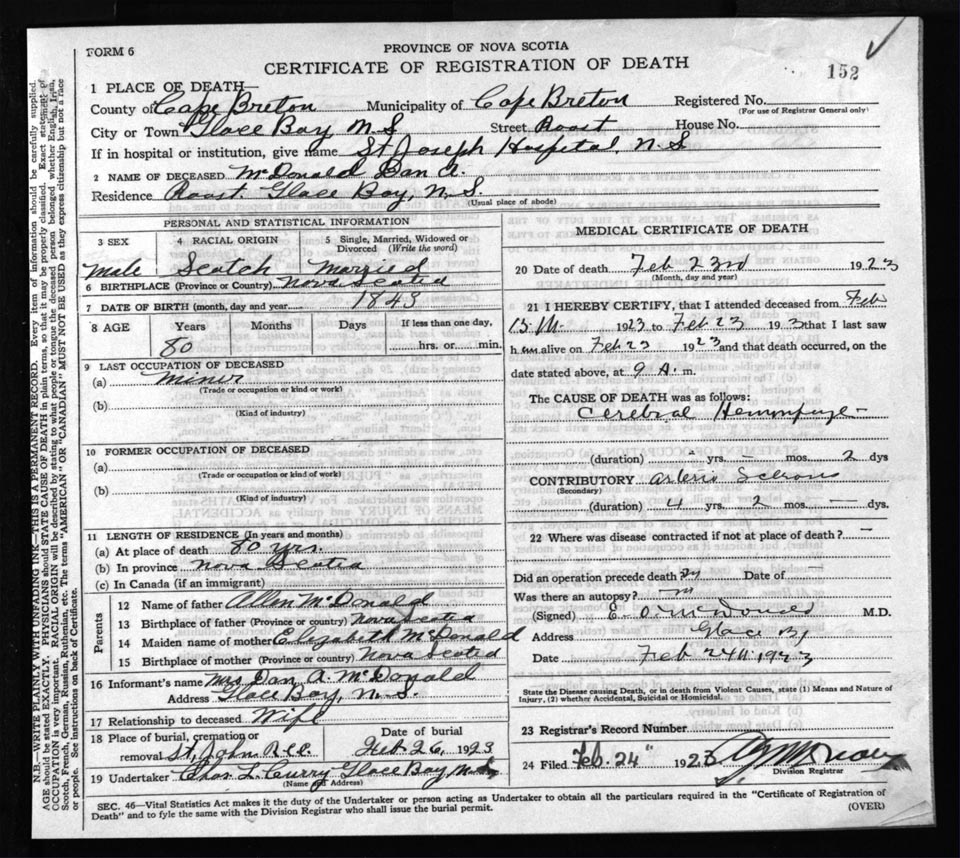 FORM 6
PROVINCE OF NOVA SCOTIA
CERTIFICATE OF REGISTRATION OF DEATH
152
1 PLACE OF DEATH—
County of Cape Breton Municipality of Cape Breton Registered No.
(For use of Registrar General only)
City or Town Glace Bay N.S Street Roost House No.
If in hospital or institution, give name St. Joseph Hospital, N.S
2 NAME OF DECEASED McDonald Dan A.
Residence Roost. Glace Bay, N.S.
(Usual place of abode)
PERSONAL AND STATISTICAL INFORMATION
3 SEX 4 RACIAL ORIGIN 5 Single, Married, Widowed or Divorced (Write the word)
Male Scotch Married
6 BIRTHPLACE (Province or Country) Nova Scotia
7 DATE OF BIRTH (month, day and year) 1843
8 AGE Years Months Days If less than one day,
80 hrs. or min.
9 LAST OCCUPATION OF DECEASED
(a) Miner
(Trade or occupation or kind or work)
(b)
(Kind of industry)
10 FORMER OCCUPATION OF DECEASED
(a)
(Trade or occupation or kind of work)
(b)
(Kind of industry)
11 LENGTH OF RESIDENCE (In years and months)
(a) At place of death 80 yrs.
(b) In province Nova Scotia
(c) In Canada (if an immigrant)
Parents
12 Name of father Allen McDonald
13 Birthplace of father (Province or country) Nova Scotia
14 Maiden name of mother Elizabeth McDonald
15 Birthplace of mother (Province or country) Nova Scotia
16 Informant's name Mrs Dan A. McDonald
Address Glace Bay, N.S.
17 Relationship to deceased Wife
18 Place of burial, cremation or removal Date of burial
St. Johns Feb 26, 1923
19 Undertaker Chas. L. Curry Glace Bay N.S
(Name and Address)
MEDICAL CERTIFICATE OF DEATH
20 Date of death Feb 23rd 1923
(Month, day and year)
21 I HEREBY CERTIFY, that I attended deceased from Feb
1923 to Feb 23 1923 that I last saw
him alive on Feb 23 1923 and that death occurred, on the
date stated above, at 9 A. m.
The CAUSE OF DEATH was as follows:
Cerebral Hemmhage —
(duration) — yrs. — mos. 2 dys
CONTRIBUTORY Arterio Sclrosis
(Secondary)
(duration) 4 yrs. 2 mos. — dys.
22 Where was disease contracted if not at place of death? —
Did an operation precede death? Date of —
Was there an autopsy?
(Signed) E. O. McDonald M.D.
Address Glace By
Date Feb 24th 1923
State the Disease causing Death, or in death from Violent Causes, state (1) Means and Nature of
Injury, (2) whether Accidental, Suicidal or Homicidal.
23 Registrar's Record Number
24 Filed Feb. 24" 1923
Division Registrar
SEC. 46—Vital Statistics Act makes it the duty of the Undertaker or person acting as Undertaker to obtain all the particulars required in the "Certificate of Registration of
Death" and to fyle the same with the Division Registrar who shall issue the burial permit. (OVER)
N.B.—WRITE PLAINLY WITH UNFADING INK—THIS IS A PERMANENT RECORD. Every item of information should be carefully supplied.
AGE should be stated EXACTLY. PHYSICIANS should STATE CAUSE OF DEATH in plain terms, so that it may be properly classified. Exact statement of
OCCUPATION is very important. RACIAL ORIGIN will be described by stating to what people or tongue the deceased person belonged whether English, Irish,
Scotch, French, German, Russian, Ruthenian, etc. The terms "AMERICAN" OR "CANADIAN" MUST NOT BE USED as they express citizenship but not a race
or people. See instructions on back of Certificate.